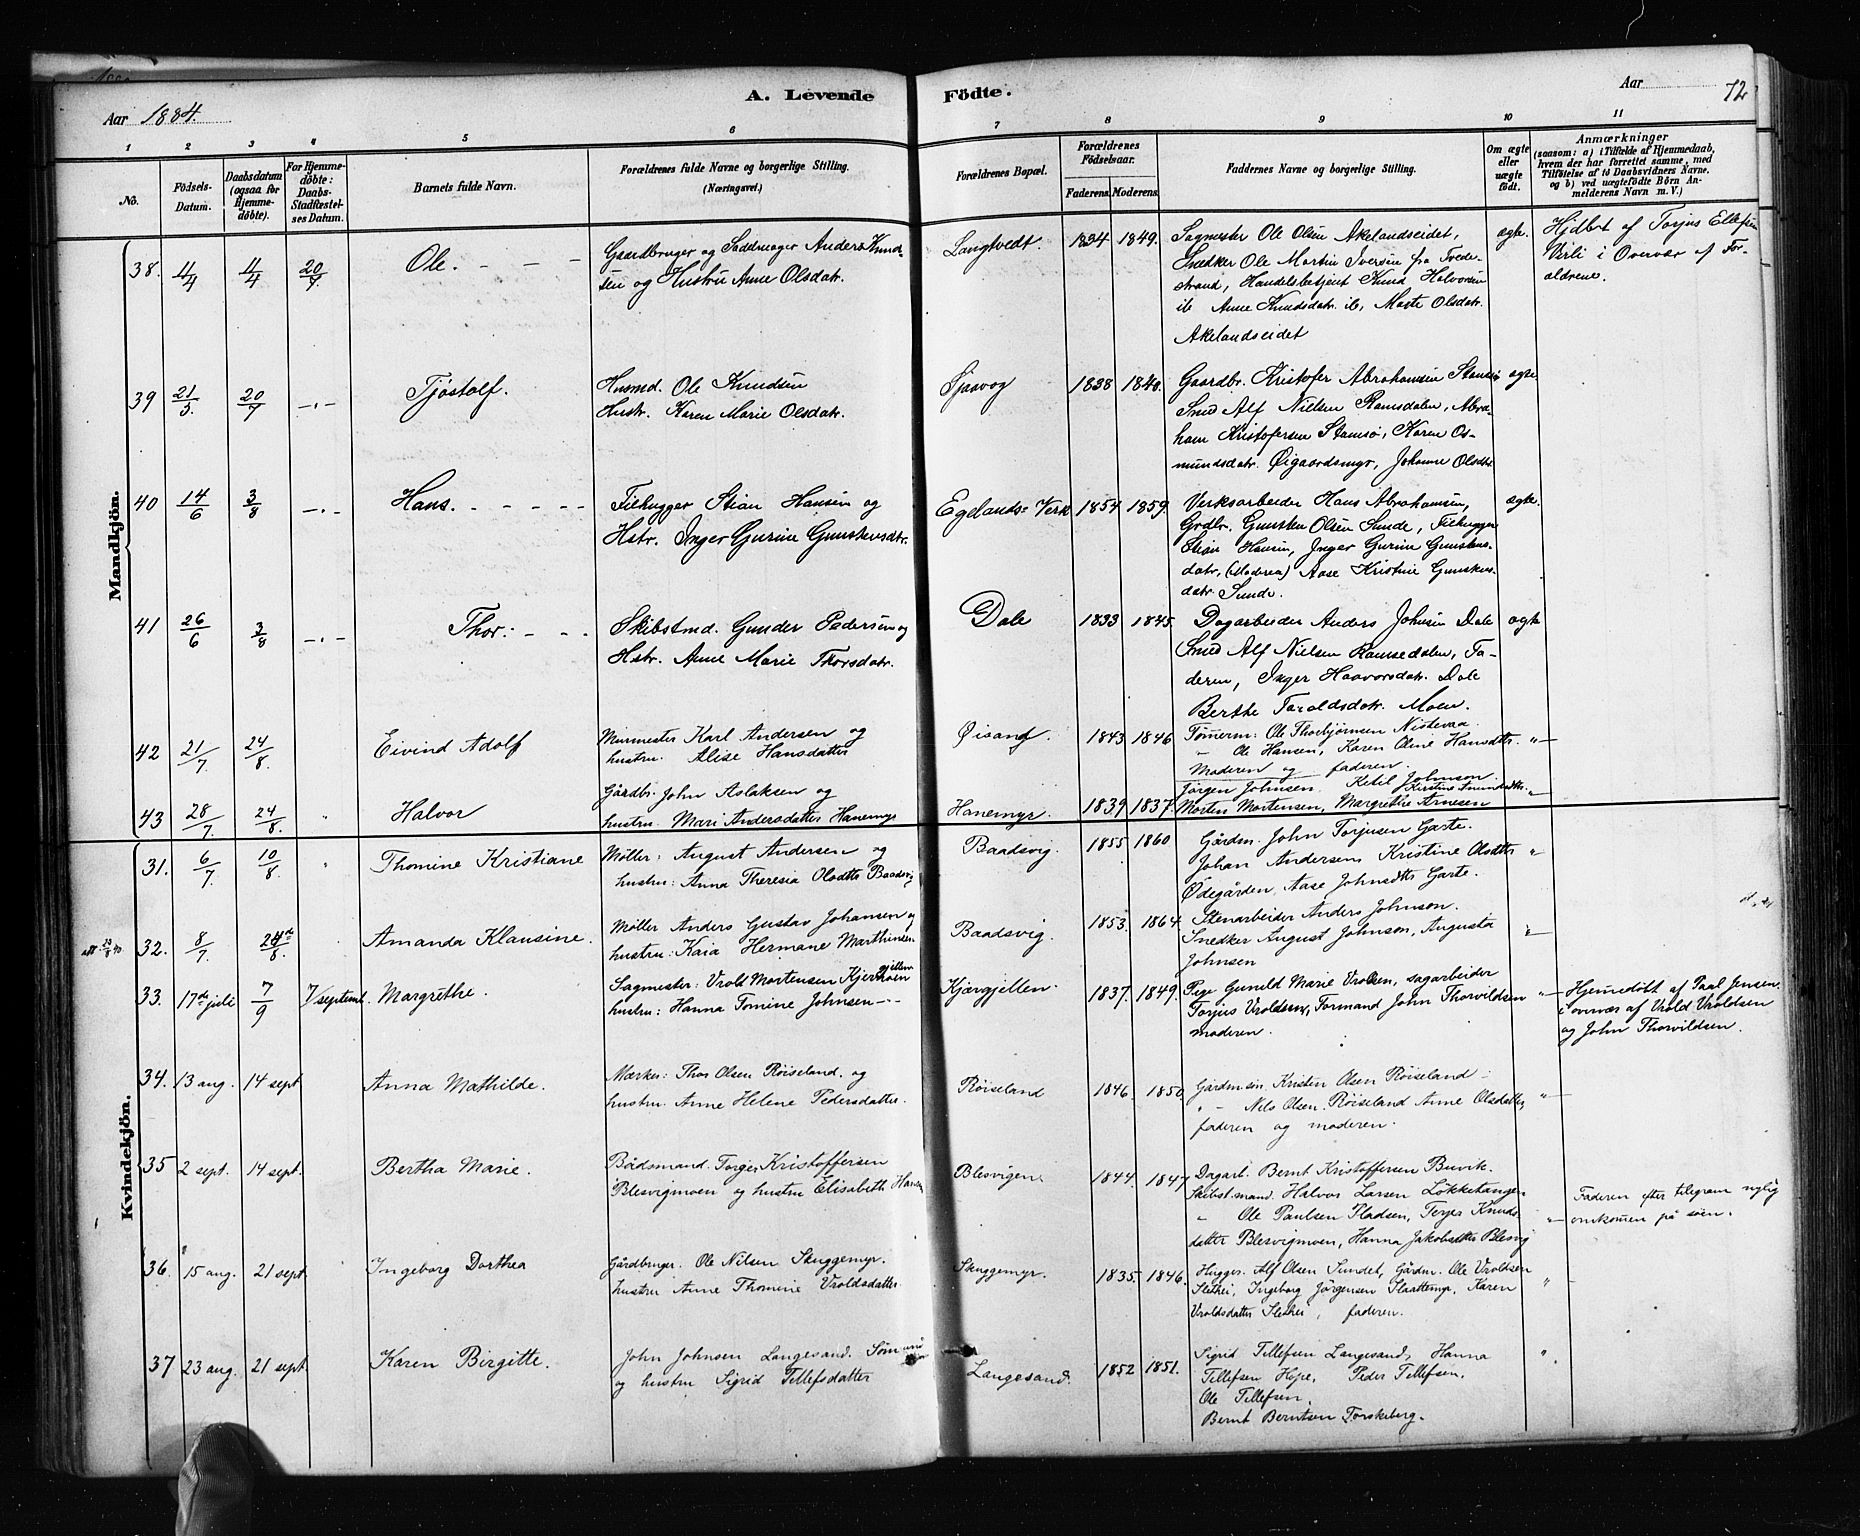 Aar 1884.
A. Levende Födte.
Aar
72
1 2 3 4 5 6 7 8 9 10 11
No.
Födsels-Datum.
Daabsdatum (ogsaa for Hjemme-döbte).
For Hjemme-döbte: Daabs-Stadfæstel-ses Datum.
Barnets fulde Navn.
Forældrenes fulde Navne og borgerlige Stilling. (Næringsvei.)
Forældrenes Bopæl.
Forældrenes Födselsaar.
Faderens. Moderens.
Faddernes Navne og borgerlige Stilling.
Om ægte eller uægte födt.
Anmærkninger
(saasom: a) i Tilfælde af Hjemmedaab,
hvem der har forrettet samme, med
Tilföielse af to Daabsvidners Navne,
og b) ved uægtefödte Börn An-
melderens Navn m. V.)
Mandkjön.
38. 11/4 11/4 20/7 Ole.
Gaardbruger og Sadelmager Anders Knud-
sen og Hustru Anne Olsdatr.
Langtvedt. 1834 1849.
Sagmester Ole Olsen Akelandseidet,
Snedker Ole Martin Iversen fra Tvede-
strand, Handelsbetjent Knud Halvorsen
ib Anne Knudsdatr. ib, Marte Olsdatr.
Akelandseidet
ægte.
Hjdbt af Torjus Ellefsen
Virli i Overvær af For-
ældrene.
39 21/5 20/7 -"- Tjöstolf.
Husmd. Ole Knudsen
Hustr. Karen Marie Olsdatr.
1838 1840.
Gaardbr. Kristofer Abrahamsen Stamsö
Smed Alf Nielsen Ramsdalen, Abra-
ham Kristofersen Stamsö, Karen Os-
mundsdatr. Øigaardsmyr, Johanne Olsdtr.
ægte
40 14/6 3/8 -"- Hans.
Filhugger Stian Hansen og
Hstr. Inger Gurine Gunstensdtr.
Egelands-Verk 1854 1859.
Verksarbeider Hans Abrahamsen,
Grdbr. Gunsten Olsen Sunde, Filhugger
Stian Hansen, Inger Gurine Gunstens-
datr, (Moderen) Aase Kristine Gunstens-
datr. Sunde.
ægte.
41 26/6 3/8 -"- Thor.
Skibstmd. Gunder Pedersen og
Hstr. Anne Marie Thorsdatr.
Dale 1833 1845.
Dagarbeider Anders Johnsen Dale
Smed Alf Nielsen Ramsedalen, Fa-
deren, Inger Haavorsdatr. Dale
Berthe Taraldsdatr. Moen.
ægte
42 21/7. 24/8. Eivind Adolf
Murmester Karl Andersen og
hustru. Alise Hansdatter
Øisang. 1843 1846
Tømerm: Ole Thorbjørnsen Nistevaa.
" Ole Hansen, Karen Oline Hansdttr.
Moderen og faderen.
"
43 28/7. 24/8. " Halvor
Gårdbr. John Aslaksen og
hustru. Mari Andersdatter Hanemyr
Hanemyr. 1839 1837.
Jørgen Johnsen. Ketil Johnson.
Morten Mortensen, Margrethe Arnesen
"
Kvindekjön.
31. 6/7 10/8 " Thomine Kristiane
Möller: August Andersen og
hustru: Anna Theresia Olsdttr Baadsvig
Baadsvig. 1855 1860
Gårdm. John Torjusen Garte.
Johan Andersen Kristine Olsdttr
Ödegården, Aase Johnsdttr Garte.
"
32. 8/7. Amanda Klausine.
Möller Anders Gustav Johansen og
hustru: Kaia Hermane Marthinsen
Baadsvig. 1853 1864.
Stenarbeider Anders Johnson.
Snedker August Johnson, Augusta
Johnsen
"
33. 17de juli 7/9 7/septemb. Margrethe.
Sagmester: Vrold Mortensen
hustru: Hanna Tomine Johnsen
Kjærgjellen. 1837. 1849.
Pige Gunild Marie Vroldsen, sagarbeider
Torjus Vroldsen, Formand John Thorvildsen
moderen.
"
Hjemedöbt af Paal Jensen.
i overvær af Vrold Vroldsen
og John Thorvildsen.
34. 13 aug. 14 sept. Anna Mathilde.
Thor Olsen Röiseland. og
hustru: Anne Helene Pedersdatter.
Röiseland 1846. 1850.
Gårdmsön. Kristen Olsen Röiseland
" Nils Olsen. Röiseland Anne Olsdatter,
faderen og moderen.
"
35 2 sept. 14 sept. Bertha Marie.
Bådsmand. Torger Kristoffersen
Blesvigmoen og hustru Elisabeth Hansen
Blesvigen. 1844. 1847
Dagarb. Bernt Kristoffersen Buvik.
Skibst.mand. Halvor Larsen Lökketangen
" Ole Paulsen Pladsen, Terjer Knuds-
datter Blesvigmoen, Hanna Jakobsdtter Blesvig
"
Faderen efter telegram nylig
omkommen på söen.
36. 15 aug. 21 sept. Ingeborg Dorthea
Gårdbruger. Ole Nilsen Skuggemyr.
hustru Anne Thomine Vroldsdatter
Skuggemyr. 1835. 1846.
Hugger. Alf Olsen Sundet, Gårdm. Ole Vroldsen
Slethei, Ingeborg Jörgensen Slaattemyr, Karen
Vroldsdatter Slethei, faderen.
"
37 23 aug. 21 sept. Karen Birgitte.
John Johnsen Langesand. Sömand
og hustru Sigrid Tellefsdatter
Langesand. 1852 1851.
Sigrid Tellefsen Langesand, Hanna
Tellefsen Hope, Peder Tellefsen.
Ole Tellefsen.
Bernt Berntsen Torskeberg.
"